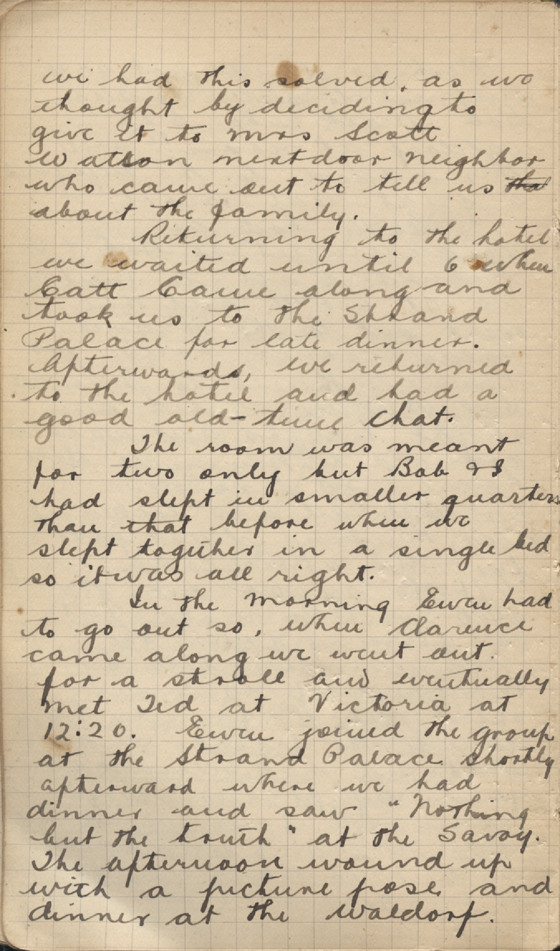 we had this solved, as we
thought by deciding to
give it to Mrs Scott
Watson nextdoor neighbor
who came out to tell us that
about the family.
Returning to the hotel
we waited until 6 when
Catt Came along and
took us to the Strand
Palace for late dinner.
Afterwards, we returned
to the hotel and had a
good old-time chat.
The room was meant
for two only but Bob & I
had slept in smaller quarters
than that before when we
slept together in a single bed
so it was all right.
In the morning Ewen had
to go out so, when Clarence
came along we went out
for a stroll and eventually
met Ted at Victoria at
12:20. Ewen joined the group
at the Strand Palace shortly
afterward where we had
dinner and saw "Nothing
but the truth" at the Savoy.
The afternoon wound up
with a picture pose and
dinner at the Waldorf.